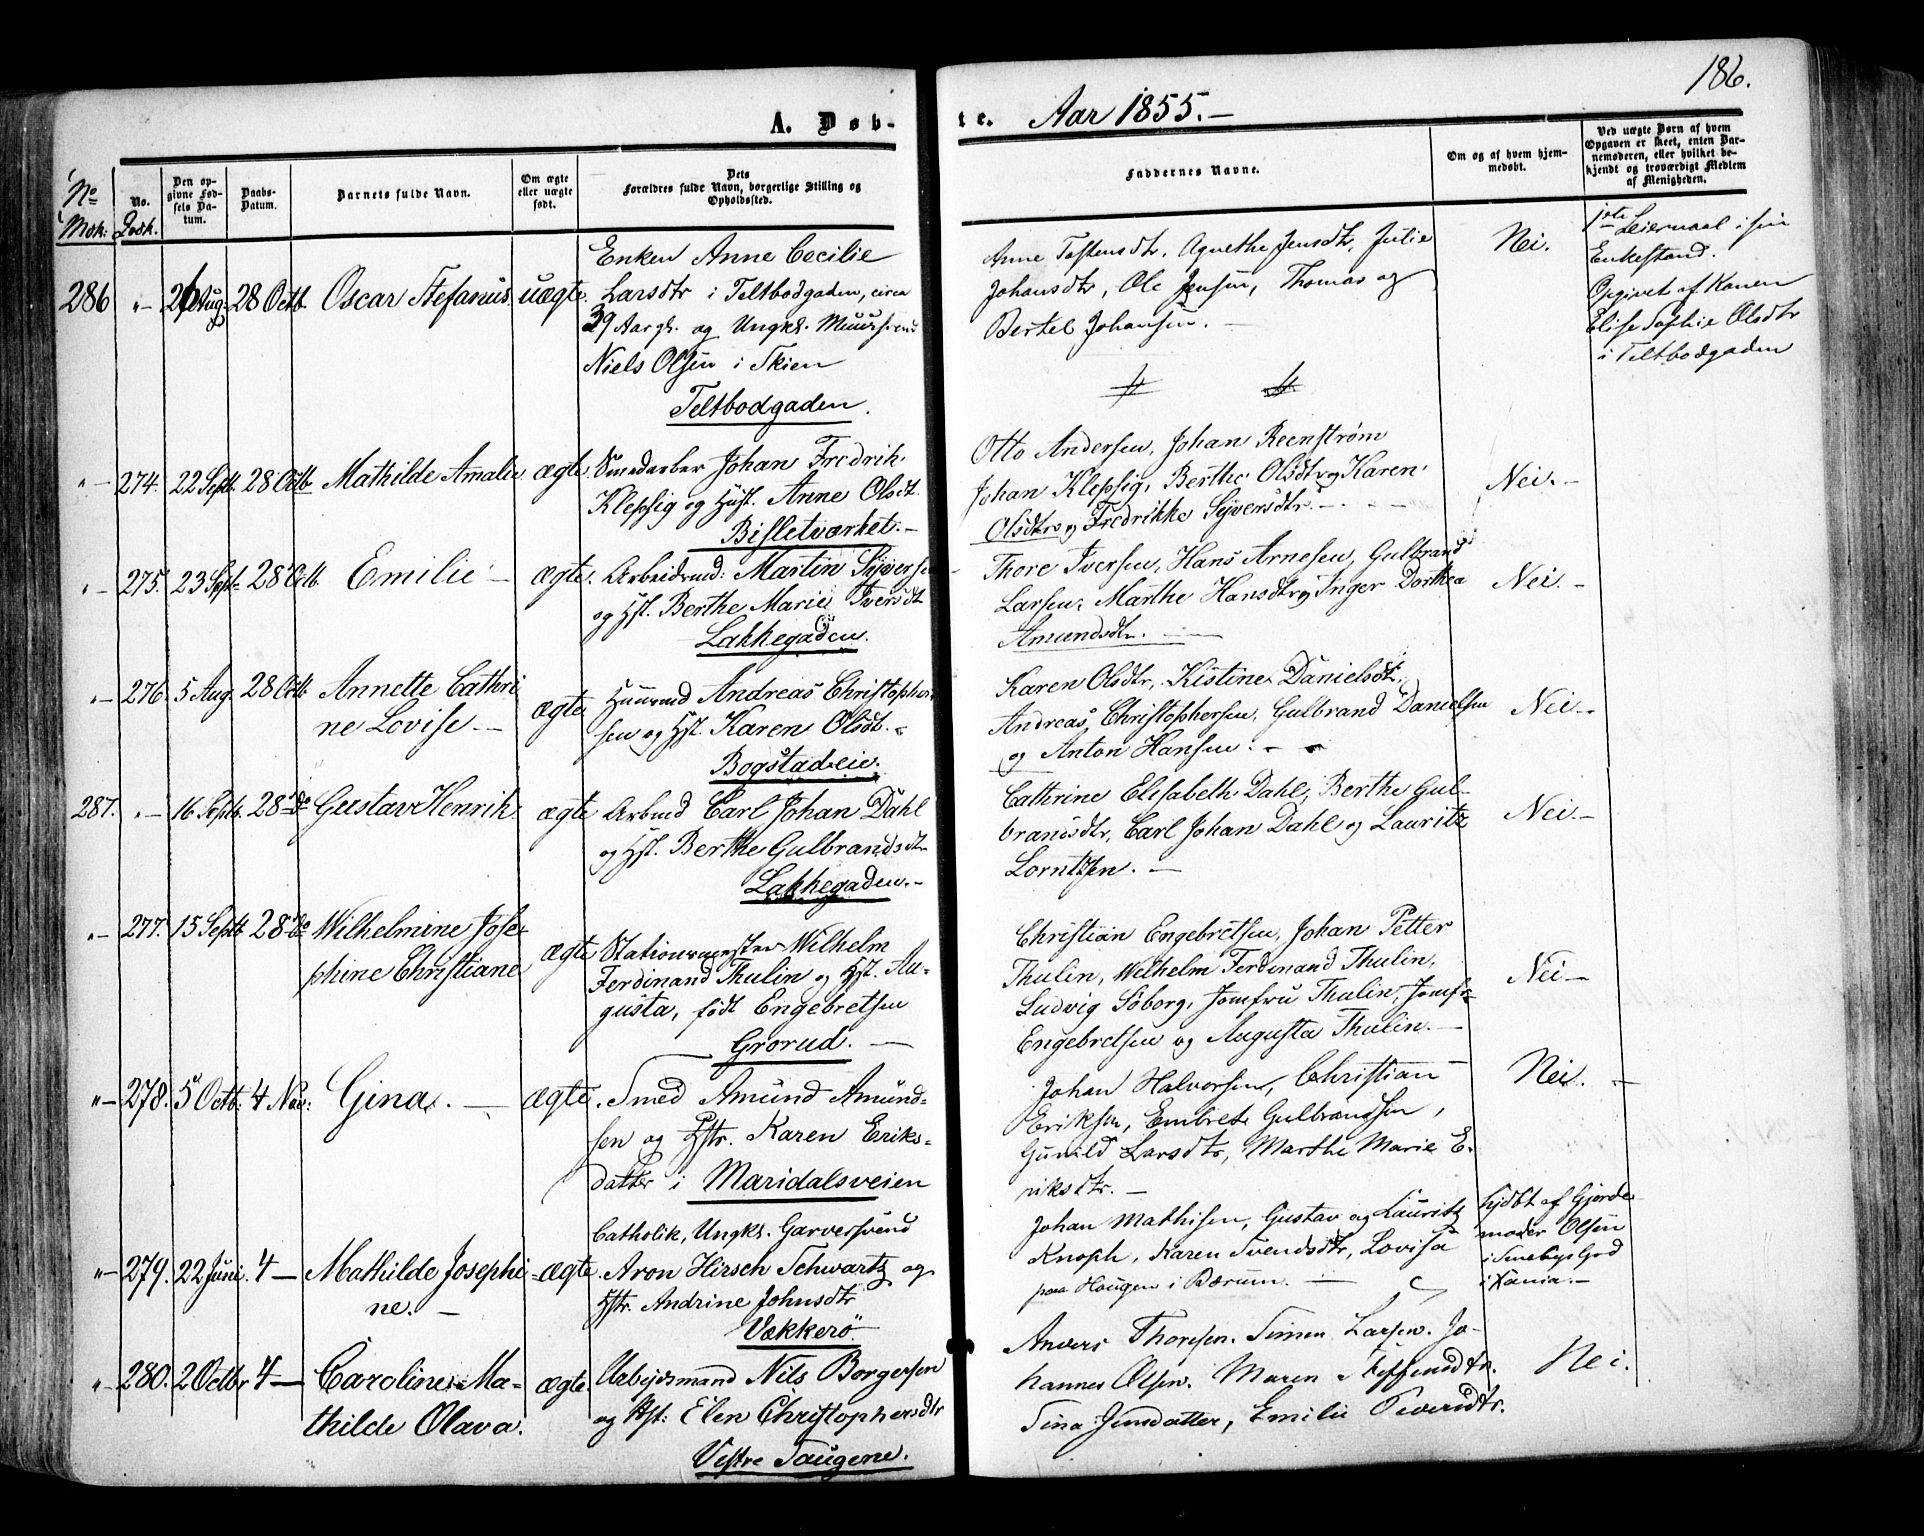 186.
A. Døb-
te. Aar 1855.-
No Msk:
No. Qvsk.
Den op-
givne Fød-
sels Da-
tum.
Daabs-
Datum.
Barnets fulde Navn.
Om ægte
eller uægte
født.
Dets
Forældres fulde Navn, borgerlige Stilling og
Opholdssted.
Faddernes Navne.
Om og af hvem hjem-
medøbt.
Ved uægte Børn af hvem
Opgaven er skeet, enten Bar-
nemoderen, eller hvilket be-
kjendt og troværdigt Medlem
af Menigheden.
286 "- 26 Aug: 28 Octb. Oscar Stefanus. uægte.
Enken Anne Cecilie
Larsdtr i Teltbodgaden, circa
39 Aar gl. og Ungk. Muursvend
Niels Olsen i Skien
Teltbodgaden.
Anne Tostensdtr. Agnethe Jensdtr, Julie
Johansdtr, Ole Jensen, Thomas og
Bertel Johansen. -
Nei.
1ste Leiermaal i sin
Enkestand.
Opgivet af Konen
Elise Sophie Olsdtr
i Teltbodgaden
"- 274. 22 Sept. 28 Octb Mathilde Amalie ægte.
Smedarber Johan Fredrik
Klepsig og Hust. Anne Olsdt.
Bisletværket.-
Otto Andersen, Johan Reenstrøm
Johan Klepsig, Berthe Olsdtr og Karen
Olsdtr og Fredrikke Syversdtr. -
Nei. -
"- 275. 23 Sept. 28 Octb. Emilie - ægte.
Arbeidsmd: Martin Syversen
og Hst. Berthe Marie Iversdt
Lakkegaden.
Thore Iversen, Hans Arnesen, Gulbrand
Larsen, Marthe Hansdtr og Inger Dorthea
Amundsdtr. -
Nei. -
"- 276. 5 Aug. 28 Octb Annette Cathri
ne Lovise. - ægte
Huusmd Andreas Christopher-
sen og Hst. Karen Olsdt. -
Bogstadveie.
Karen Olsdtr, Kistine Danielsdt,
Andreas Christophersen, Gulbrand Danielsen
og Anton Hansen. - -
Nei. -
287. "- 16 Septb. 28 do Gustav Henrik. ægte
Arbmd Carl Johan Dahl
og Hst. Berthe Gulbrandsdtr
Lakkegaden.-
Cathrine Elisabeth Dahl, Berthe Gul-
brandsdtr, Carl Johan Dahl og Lauritz
Lorntzen. -
Nei. -
"- 277. 15 Septb 28 do Wilhelmine Jose-
phine Christiane ægte
Stationsmester Wilhelm
Ferdinand Thulin og Hst. Au-
gusta, født Engebretsen
Grorud. -
Christian Engebretsen, Johan Petter
Thulin, Wilhelm Ferdinand Thulin,
Ludvig Soborg, Jomfru Thulin, Jomfr
Engebretsen og Augusta Thulin. -
Nei -
"- 278. 5 Octb: 4 Nov: Gina. - ægte.
Smed Amund Amund-
sen og Hstr. Karen Eriks-
datter i Maridalsveien
Johan Halvorsen, Christian
Eriksen, Embret Gulbrandsen,
Gunild Larsdtr, Marthe Marie E-
riksdtr. -
Nei. -
"- 279. 22 Juni. 4 - Mathilde Josephi-
ne. - ægte.
Catholik, Ungk. Garversvend
Aron Hirsch Schwartz og
Hstr. Andrine Johnsdtr
Vækkerö
Johan Mathisen, Gustav og Lauritz
Knoph, Karen Svendsdtr, Lovisa
paa Haugen i Bærum. -
hjdbt af Gjorde-
moder Olsen
i Smebyes Grd
"- 280. 2 Octbr 4 - Caroline Ma-
thilde Olava. ægte.
Arbejdsmand Nils Borgersen
og Hst: Elen Christophersdtr
Vestre Taugene.
Anders Thoresen. Simen Larsen. Jo-
hannes Olsen. Maren Steffensdtr.
Sina Jensdatter, Emilie Sivertsdtr.
Nei.